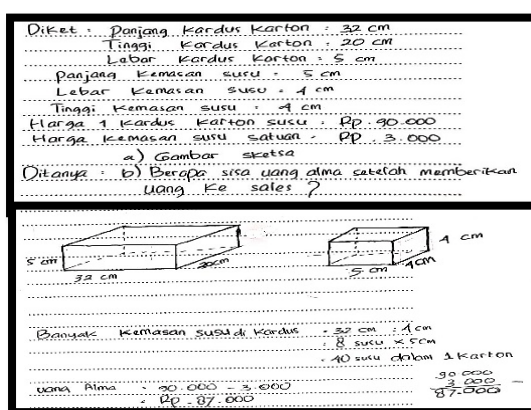 Diket : Panjang Kardus Karton : 32 cm
Tinggi Kardus Karton : 20 cm
Lebar Kardus Karton : 5 cm
Panjang Kemasan susu : 5 cm
Lebar Kemasan susu : 4 cm
Tinggi Kemasan susu : 4 cm
Harga 1 Kardus Karton susu : Rp. 90.000
Harga Kemasan susu satuan : Rp. 3.000
a) Gambar sketsa
Ditanya : b) Berapa sisa uang alma setelah memberikan
uang Ke sales ?
5 cm
32 cm
20cm
4 cm
5 cm
4cm
Banyak Kemasan susu di Kardus = 32 cm : 4 cm
: 8 susu x 5 cm
: 40 susu dalam 1 Karton
uang Alma : 90.000 - 3.000
: Rp. 87.000
90 000
3.000 -
87.000